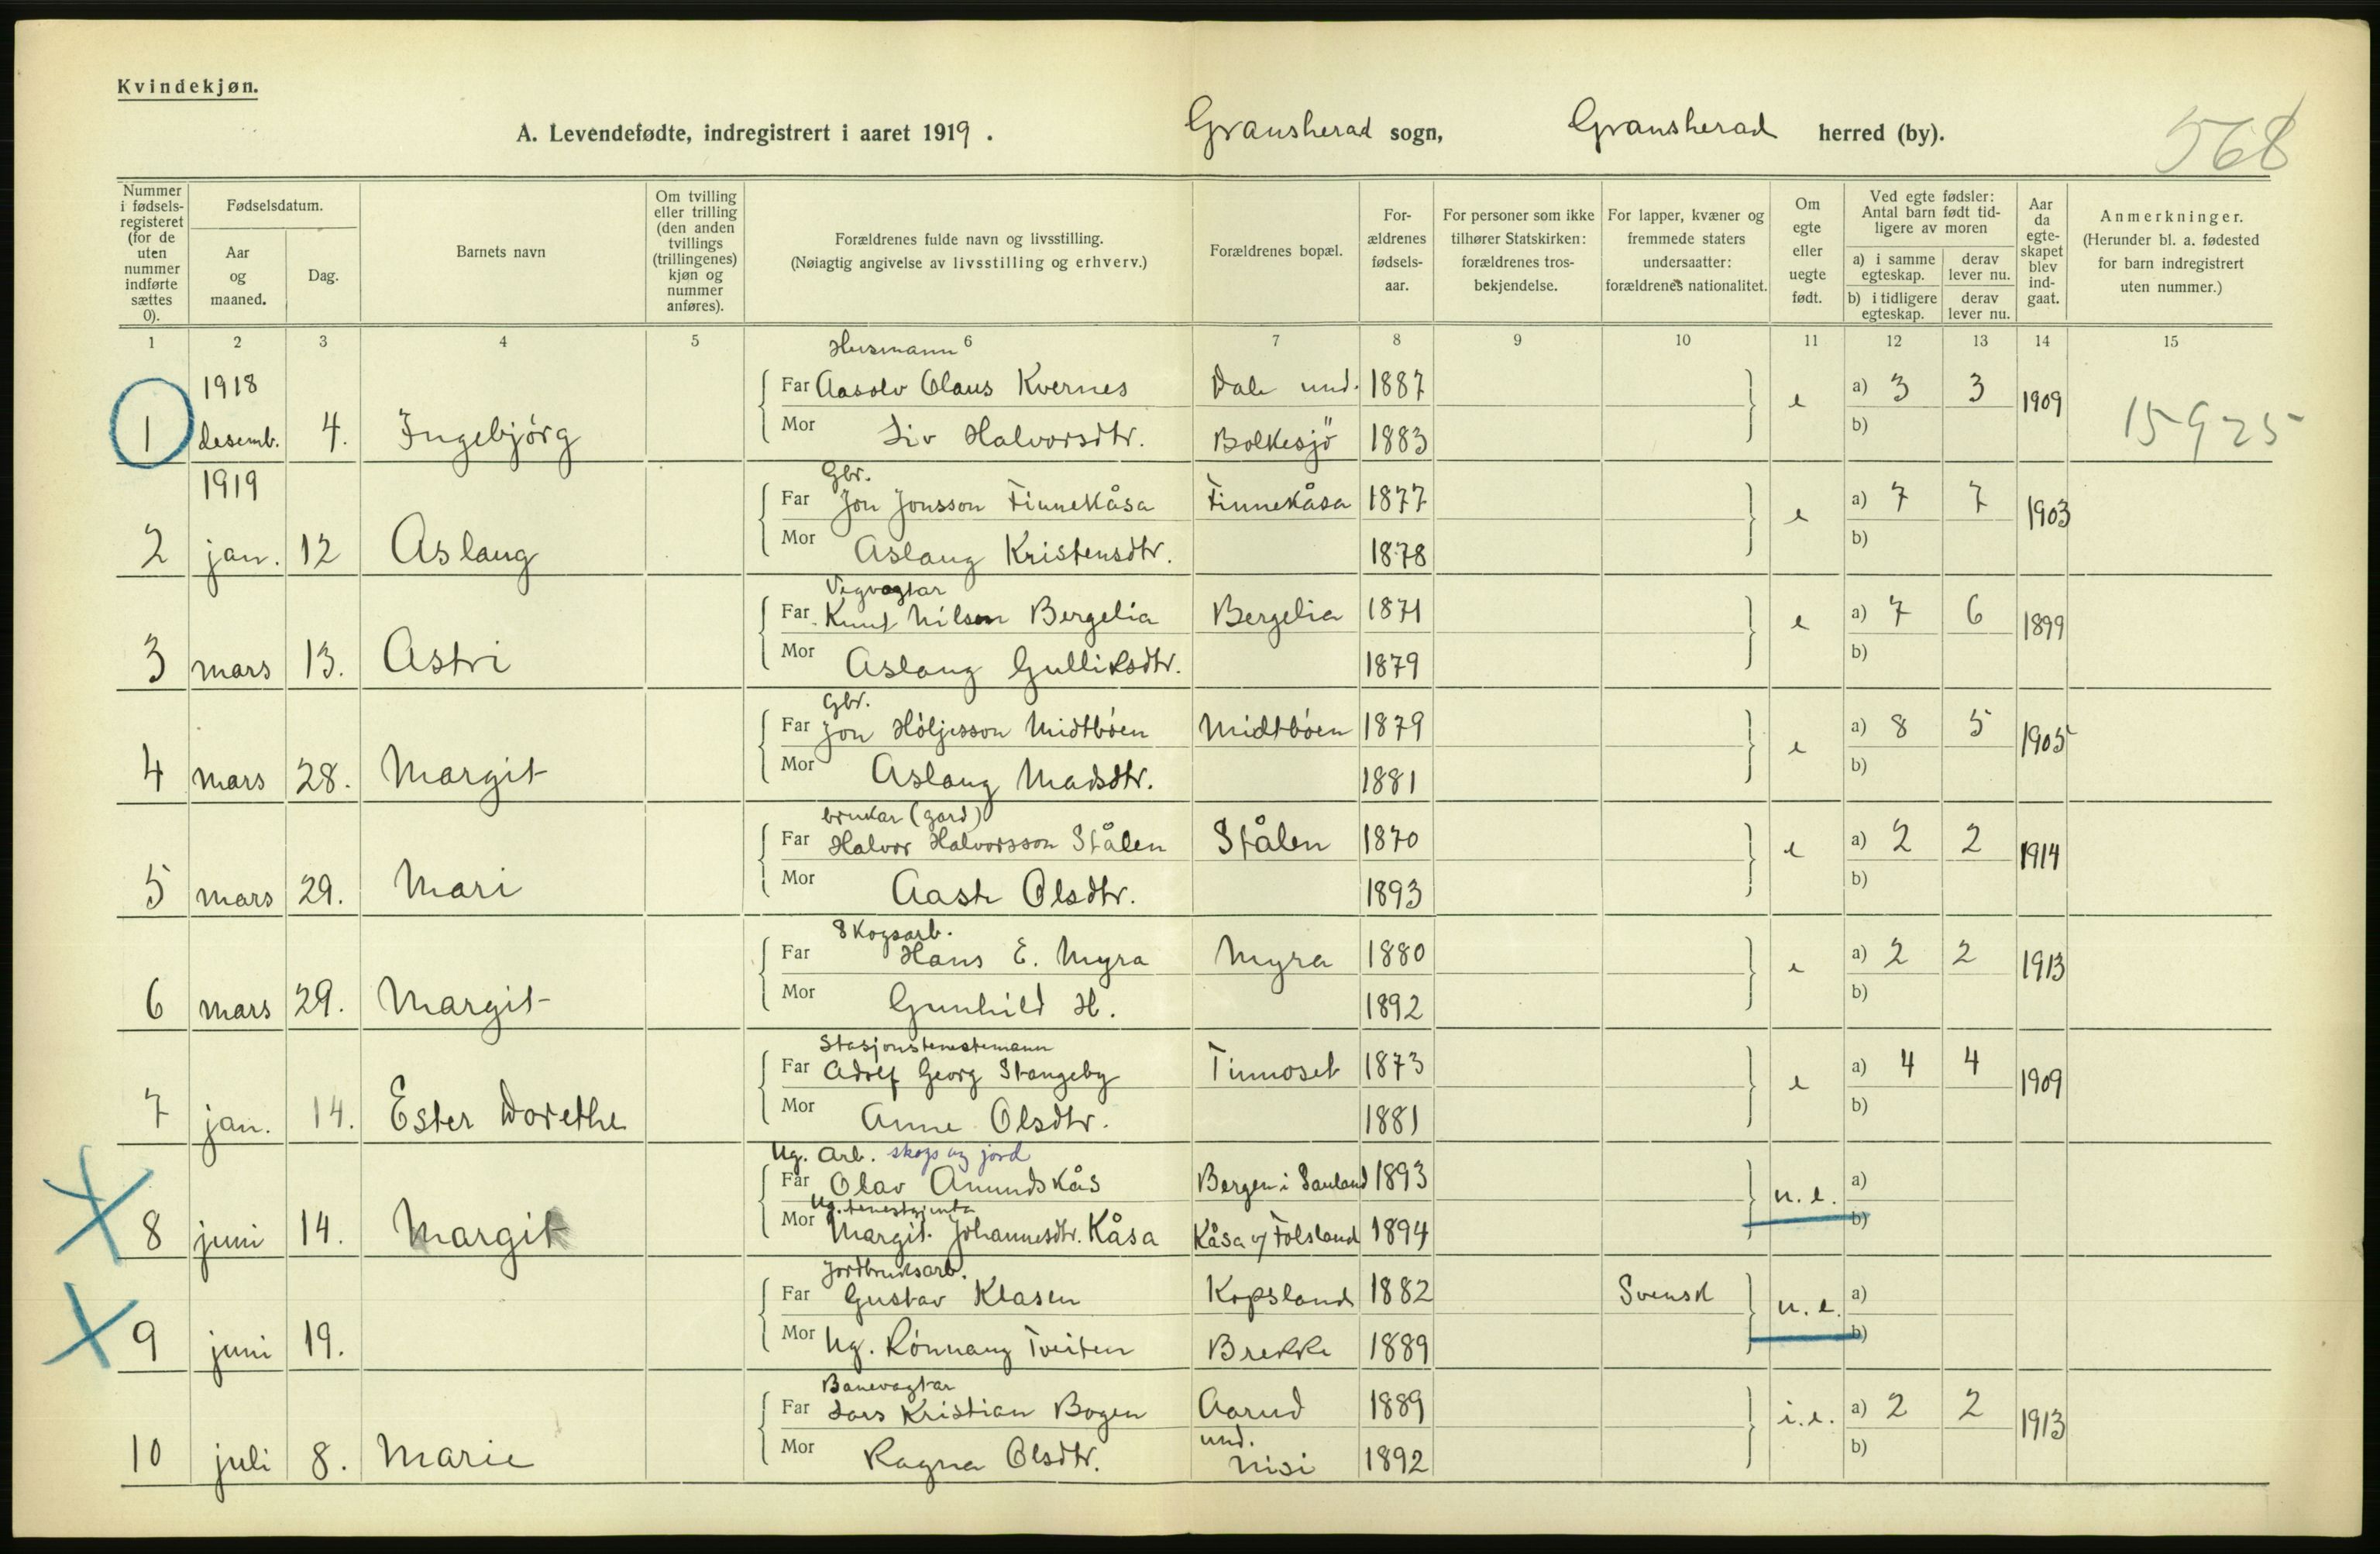 Kvindekjøn.
A. Levendefødte, indregistrert i aaret 1919. Gransherad sogn, Gransherad herred (by). 568
Nummer i fødsels-registeret (for de uten nummer indførte sættes 0).
Fødselsdatum.
Aar og maaned.
Dag.
Barnets navn
Om tvilling eller trilling (den anden tvillings (trillingenes) kjøn og nummer anføres).
Forældrenes fulde navn og livsstilling.
(Nøiagtig angivelse av livsstilling og erhverv.)
Forældrenes bopæl.
For-ældrenes fødsels-aar.
For personer som ikke tilhører Statskirken: forældrenes tros-bekjendelse.
For lapper, kvæner og fremmede staters undersaatter: forældrenes nationalitet.
Om egte eller uegte født.
Ved egte fødsler: Antal barn født tid-ligere av moren
a) i samme egteskap. derav lever nu.
b) i tidligere egteskap. derav lever nu.
Aar da egte-skapet blev ind-gaat.
Anmerkninger.
(Herunder bl. a. fødested for barn indregistrert uten nummer.)
1 2 3 4 5 6 7 8 9 10 11 12 13 14 15
Husmann
1918 Far Aasolv Olaus Kvernes Dale und. 1887 a) 3 3
1 desemb. 4. Ingebjörg Mor Liv Halvorsdtr. Bolkesjö 1883 e b) 1909 15925
Gbr.
1919 Far Jon Jonsson Finnekåsa Finnekåsa 1877 a) 7 7
2 jan. 12 Aslaug Mor Aslaug Kristensdtr. 1878 e b) 1903
Vegvagtar
Far Knut Nilsen Bergelia Bergelia 1871 a) 7 6
3 mars 13. Astri Mor Aslaug Gulliksdtr. 1879 e b) 1899
Gbr.
Far Jon Höljesson Midtböen Midtböen 1879 a) 8 5
4 mars 28. Margit Mor Aslaug Madsdtr. 1881 e b) 1905
brukar (gard)
Far Halvor Halvorsson Stålen Stålen 1870 a) 2 2
5 mars 29. Mari Mor Aaste Olsdtr. 1893 e b) 1914
Skogsarb.
Far Hans E. Myra Myra 1880 a) 2 2
6 mars 29. Margit Mor Gunhild H. 1892 e b) 1913
Stasjonstenestemann
Far Adolf Georg Stangeby Tinnoset 1873 a) 4 4
7 jan. 14. Ester Dorethe Mor Anne Olsdtr. 1881 e b) 1909
Ug. Arb. skogs og jord
Far Olav Amunds Kås Bergen i Sauland 1893 a)
Ug. tenestgjenta
8 juni 14. Margit Mor Margit Johannesdtr. Kåsa Kåsa u/ Folsland 1894 u.e. b)
Jordbruksarb.
Far Gustav Klasen Kopsland 1882 Svensk a)
9 juni 19. Mor Ug. Rönnaug Tveiten Brekke 1889 u.e. b)
Banevagtar
Far Lars Kristian Bogen Aarud 1889 a) 2 2
10 juli 8. Marie Mor Ragna Olsdtr. und. Nisi 1892 i.e. b) 1913